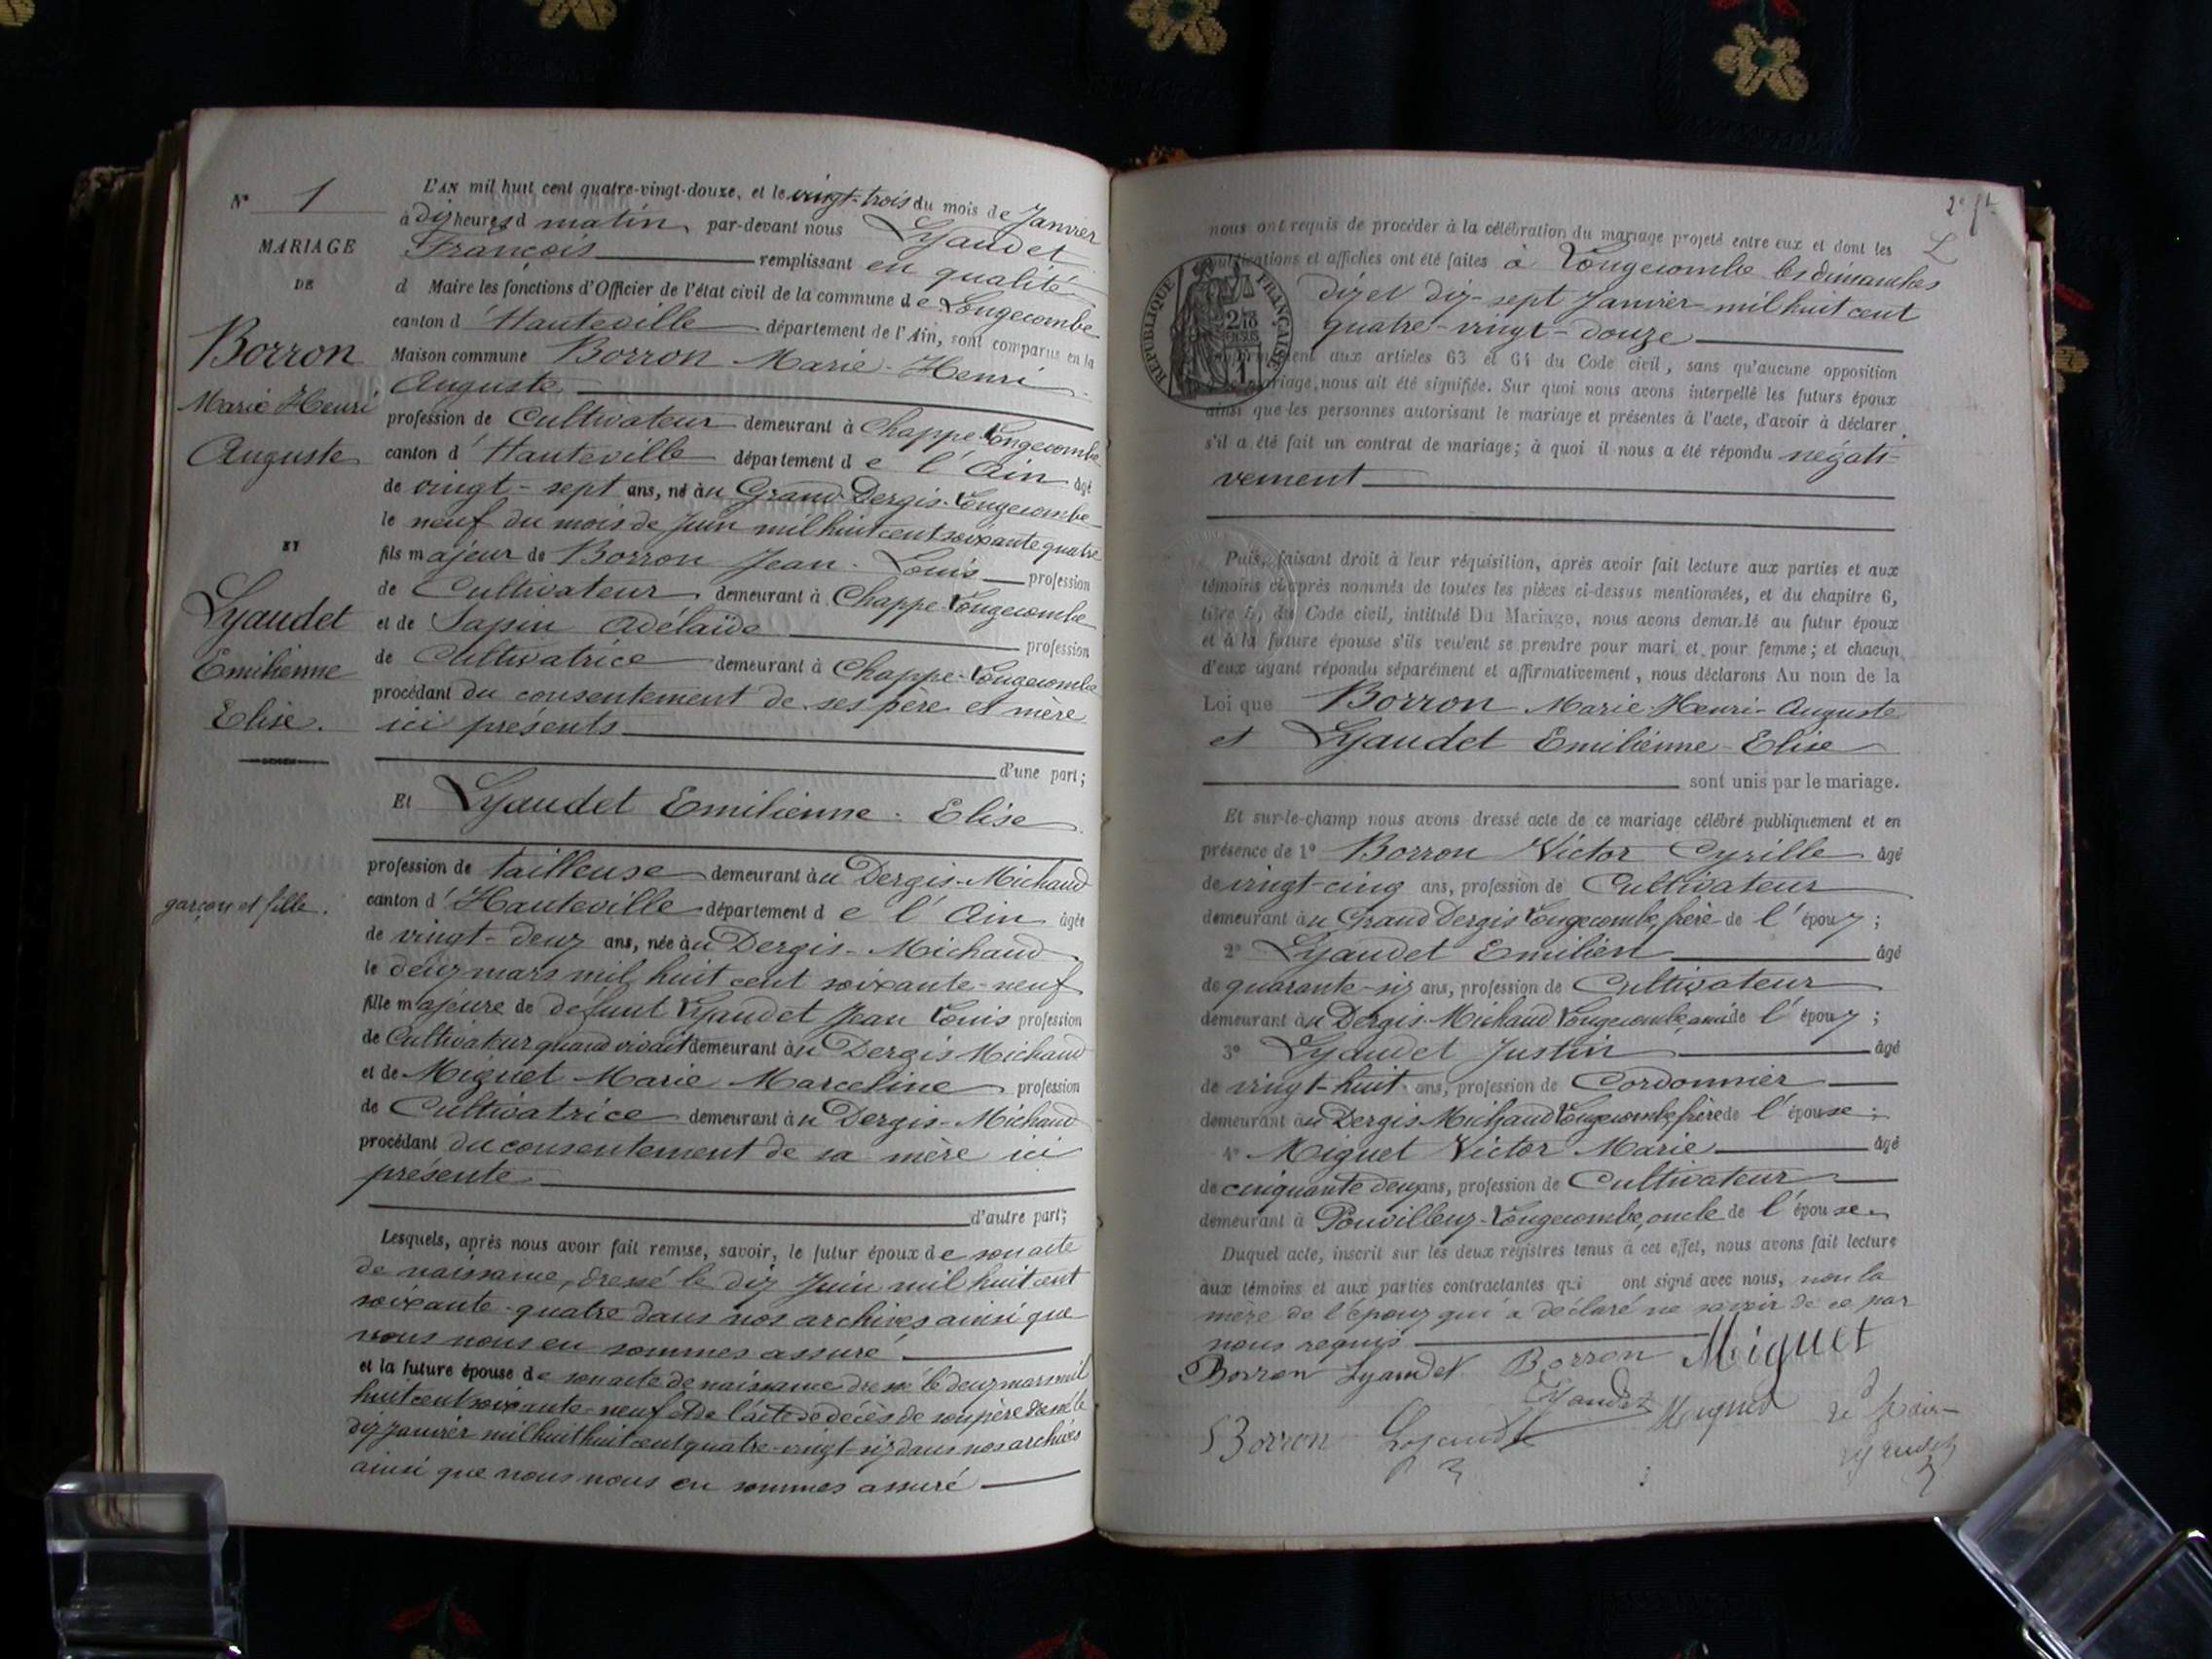 N° 1
MARIAGE
DE
Borron
Marie Henri
Auguste
ET
Lyaudet
Emilienne
Elise.
garçon et fille.
L'AN mil huit cent quatre-vingt-douze, et le vingt-trois du mois de Janvier
à dix heures d matin par-devant nous Lyaudet
François remplissant en qualité
d Maire les fonctions d'Officier de l'état civil de la commune de Longecombe
canton d'Hauteville département de l'Ain, sont comparus en la
Maison commune Borron Marie-Henri
Auguste
profession de Cultivateur demeurant à Chappe Longecombe
canton d'Hauteville département de l'Ain âgé
de vingt-sept ans, né au Grand Dergis-Longecombe
le neuf du mois de Juin mil huit cent soixante quatre
fils majeur de Borron Jean-Louis profession
de Cultivateur demeurant à Chappe-Longecombe
et de Sapin Adélaïde profession
de Cultivatrice demeurant à Chappe-Longecombe
procédant du consentement de ses père et mère
ici présents
d'une part;
Et Lyaudet Emilienne-Elise
profession de tailleuse demeurant au Dergis-Michaud
canton d'Hauteville département de l'Ain âgée
de vingt-deux ans, née au Dergis-Michaud
le deux mars mil huit cent soixante-neuf
fille majeure de défunt Lyaudet Jean Louis profession
de Cultivateur quand vivait demeurant au Dergis Michaud
et de Miguet Marie Marceline profession
de Cultivatrice demeurant au Dergis-Michaud
procédant du consentement de sa mère ici
présente
d'autre part;
Lesquels, après nous avoir fait remise, savoir, le futur époux de son acte
de naissance, dressé le dix Juin mil huit cent
soixante-quatre dans nos archives ainsi que
nous nous en sommes assuré
et la future épouse de son acte de naissance dressé le deux mars mil
huit cent soixante-neuf et de l'acte de décès de son père dressé le
dix janvier mil huit huit cent quatre-vingt-six dans nos archives
ainsi que nous nous en sommes assuré
nous ont requis de procéder à la célébration du mariage projeté entre eux et dont les
publications et affiches ont été faites à Longecombe les dimanches
dix et dix-sept Janvier mil huit cent
quatre-vingt-douze
RÉPUBLIQUE FRANÇAISE
conformément aux articles 63 et 64 du Code civil, sans qu'aucune opposition
mariage, nous ait été signifiée. Sur quoi nous avons interpellé les futurs époux
ainsi que les personnes autorisant le mariage et présentes à l'acte, d'avoir à déclarer
s'il a été fait un contrat de mariage; à quoi il nous a été répondu négati-
vement
Puis, faisant droit à leur réquisition, après avoir fait lecture aux parties et aux
témoins ci-après nommés de toutes les pièces ci-dessus mentionnées, et du chapitre 6,
titre 5, du Code civil, intitulé Du Mariage, nous avons demandé au futur époux
et à la future épouse s'ils veulent se prendre pour mari et pour femme; et chacun
d'eux ayant répondu séparément et affirmativement, nous déclarons Au nom de la
Loi que Borron Marie-Henri-Auguste
et Lyaudet Emilienne-Elise
sont unis par le mariage.
Et sur-le-champ nous avons dressé acte de ce mariage célébré publiquement et en
présence de 1° Borron Victor Cyrille âgé
de vingt-cinq ans, profession de Cultivateur
demeurant au Grand Dergis Longecombe, frère de l'époux;
2° Lyaudet Emilien âgé
de quarante-six ans, profession de Cultivateur
demeurant au Dergis-Michaud Longecombe, ami de l'époux;
3° Lyaudet Justin âgé
de vingt-huit ans, profession de Cordonnier
demeurant au Dergis Michaud Longecombe, frère de l'épouse;
4° Miguet Victor Marie âgé
de cinquante deux ans, profession de Cultivateur
demeurant à Pouvilleux-Longecombe, oncle de l'épouse.
Duquel acte, inscrit sur les deux registres tenus à cet effet, nous avons fait lecture
aux témoins et aux parties contractantes qui ont signé avec nous, non la
mère de l'époux qui a déclaré ne savoir de ce par
nous requis
Borron Lyaudet Borron Miguet
Lyaudet Miguet le Maire
Borron Lyaudet Lyaudet